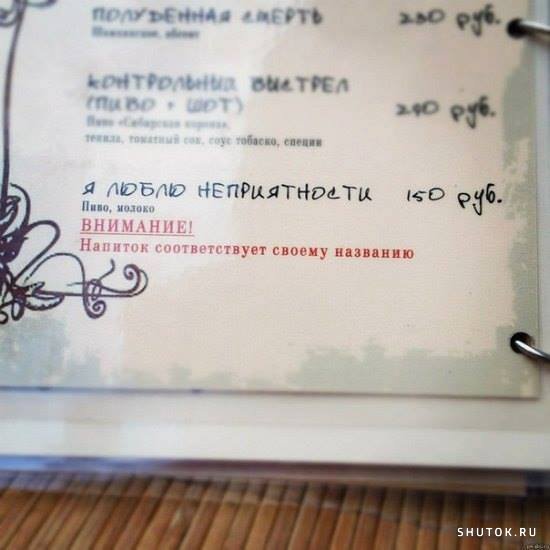 ПОЛУДЕННАЯ СМЕРТЬ 230 руб.
Шампанское, абсент
КОНТРОЛЬНЫЙ ВЫСТРЕЛ
(ПИВО + ШОТ) 290 руб.
Пиво «Сибирская корона»,
текила, томатный сок, соус тобаско, специи
Я ЛЮБЛЮ НЕПРИЯТНОСТИ 150 руб.
Пиво, молоко
ВНИМАНИЕ!
Напиток соответствует своему названию
SHUTOK.RU